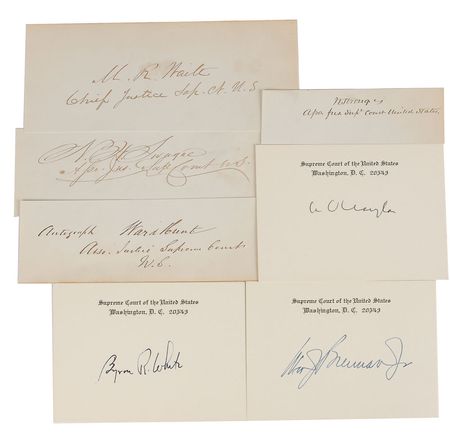 M. R. Waite
Chief Justice Sup. Ct. U.S.
W Strong
Asso. Jus Sup. Court United States,
N. H. Swayne
Asso. Jus. Sup. Court U.S.
Autograph Ward Hunt
Asso. Justice Supreme Court
U.S.
Supreme Court of the United States
Washington, D. C. 20543
Supreme Court of the United States
Washington, D. C. 20543
Byron R. White
Supreme Court of the United States
Washington, D. C. 20543
Wm J Brennan Jr